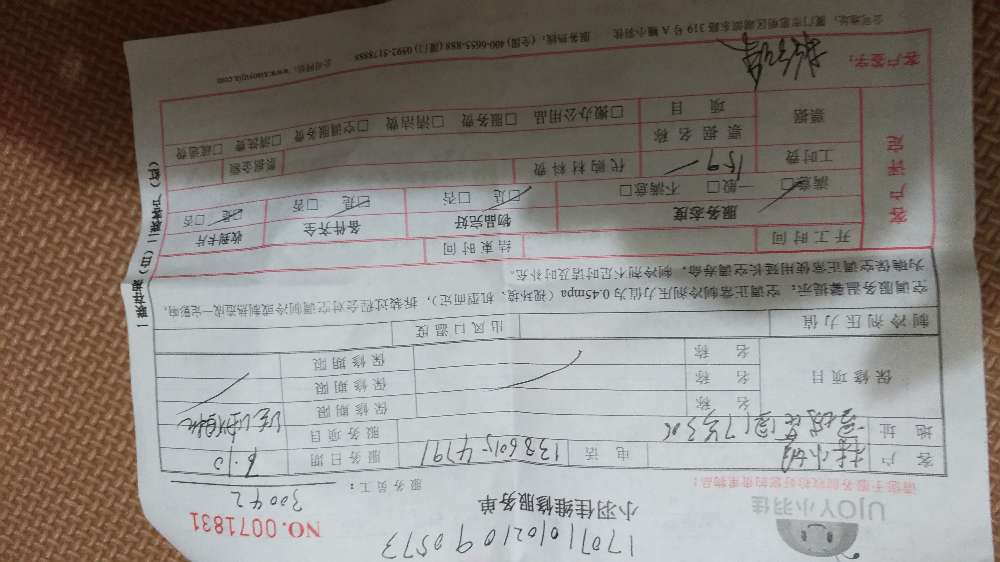 1707101021090573
UJOY小羽佳
小羽佳维修服务单
NO.0071831
请您于服务前收检好您的贵重物品!
服务员工: 30042
客户 电话 13860154791 服务日期 6.10
地址 服务项目
保修项目 名称 保修期限
名称 保修期限
名称 保修期限
制冷剂压力值 出风口温度
空调服务温馨提示:空调正常制冷剂压力值为0.45mpa(视环境、机型而定),拆装过程会对空调制冷或制热造成一定影响,
为确保空调正常使用延长空调寿命,制冷剂不足时请及时补充。
开工时间 结束时间
客户评定 服务态度 物品完好 备件齐全 收到卡片
满意☑ 一般□ 不满意□ ☑是 □否 ☑是 □否 ☑是 □否
工时费 159 代购材料费 票据金额
票据 票据名称
项目 □搬办公用品 □服务费 □清洁费 □空调服务费 □清洗费 □疏通费
客户签字:
公司地址:厦门市思明区湖滨东路319号A幢小羽佳 服务热线:(全国)400-6655-888 (厦门)0592-5178888
公司网站:www.xiaoyujia.com
一联存根(白) 二联客户(红)